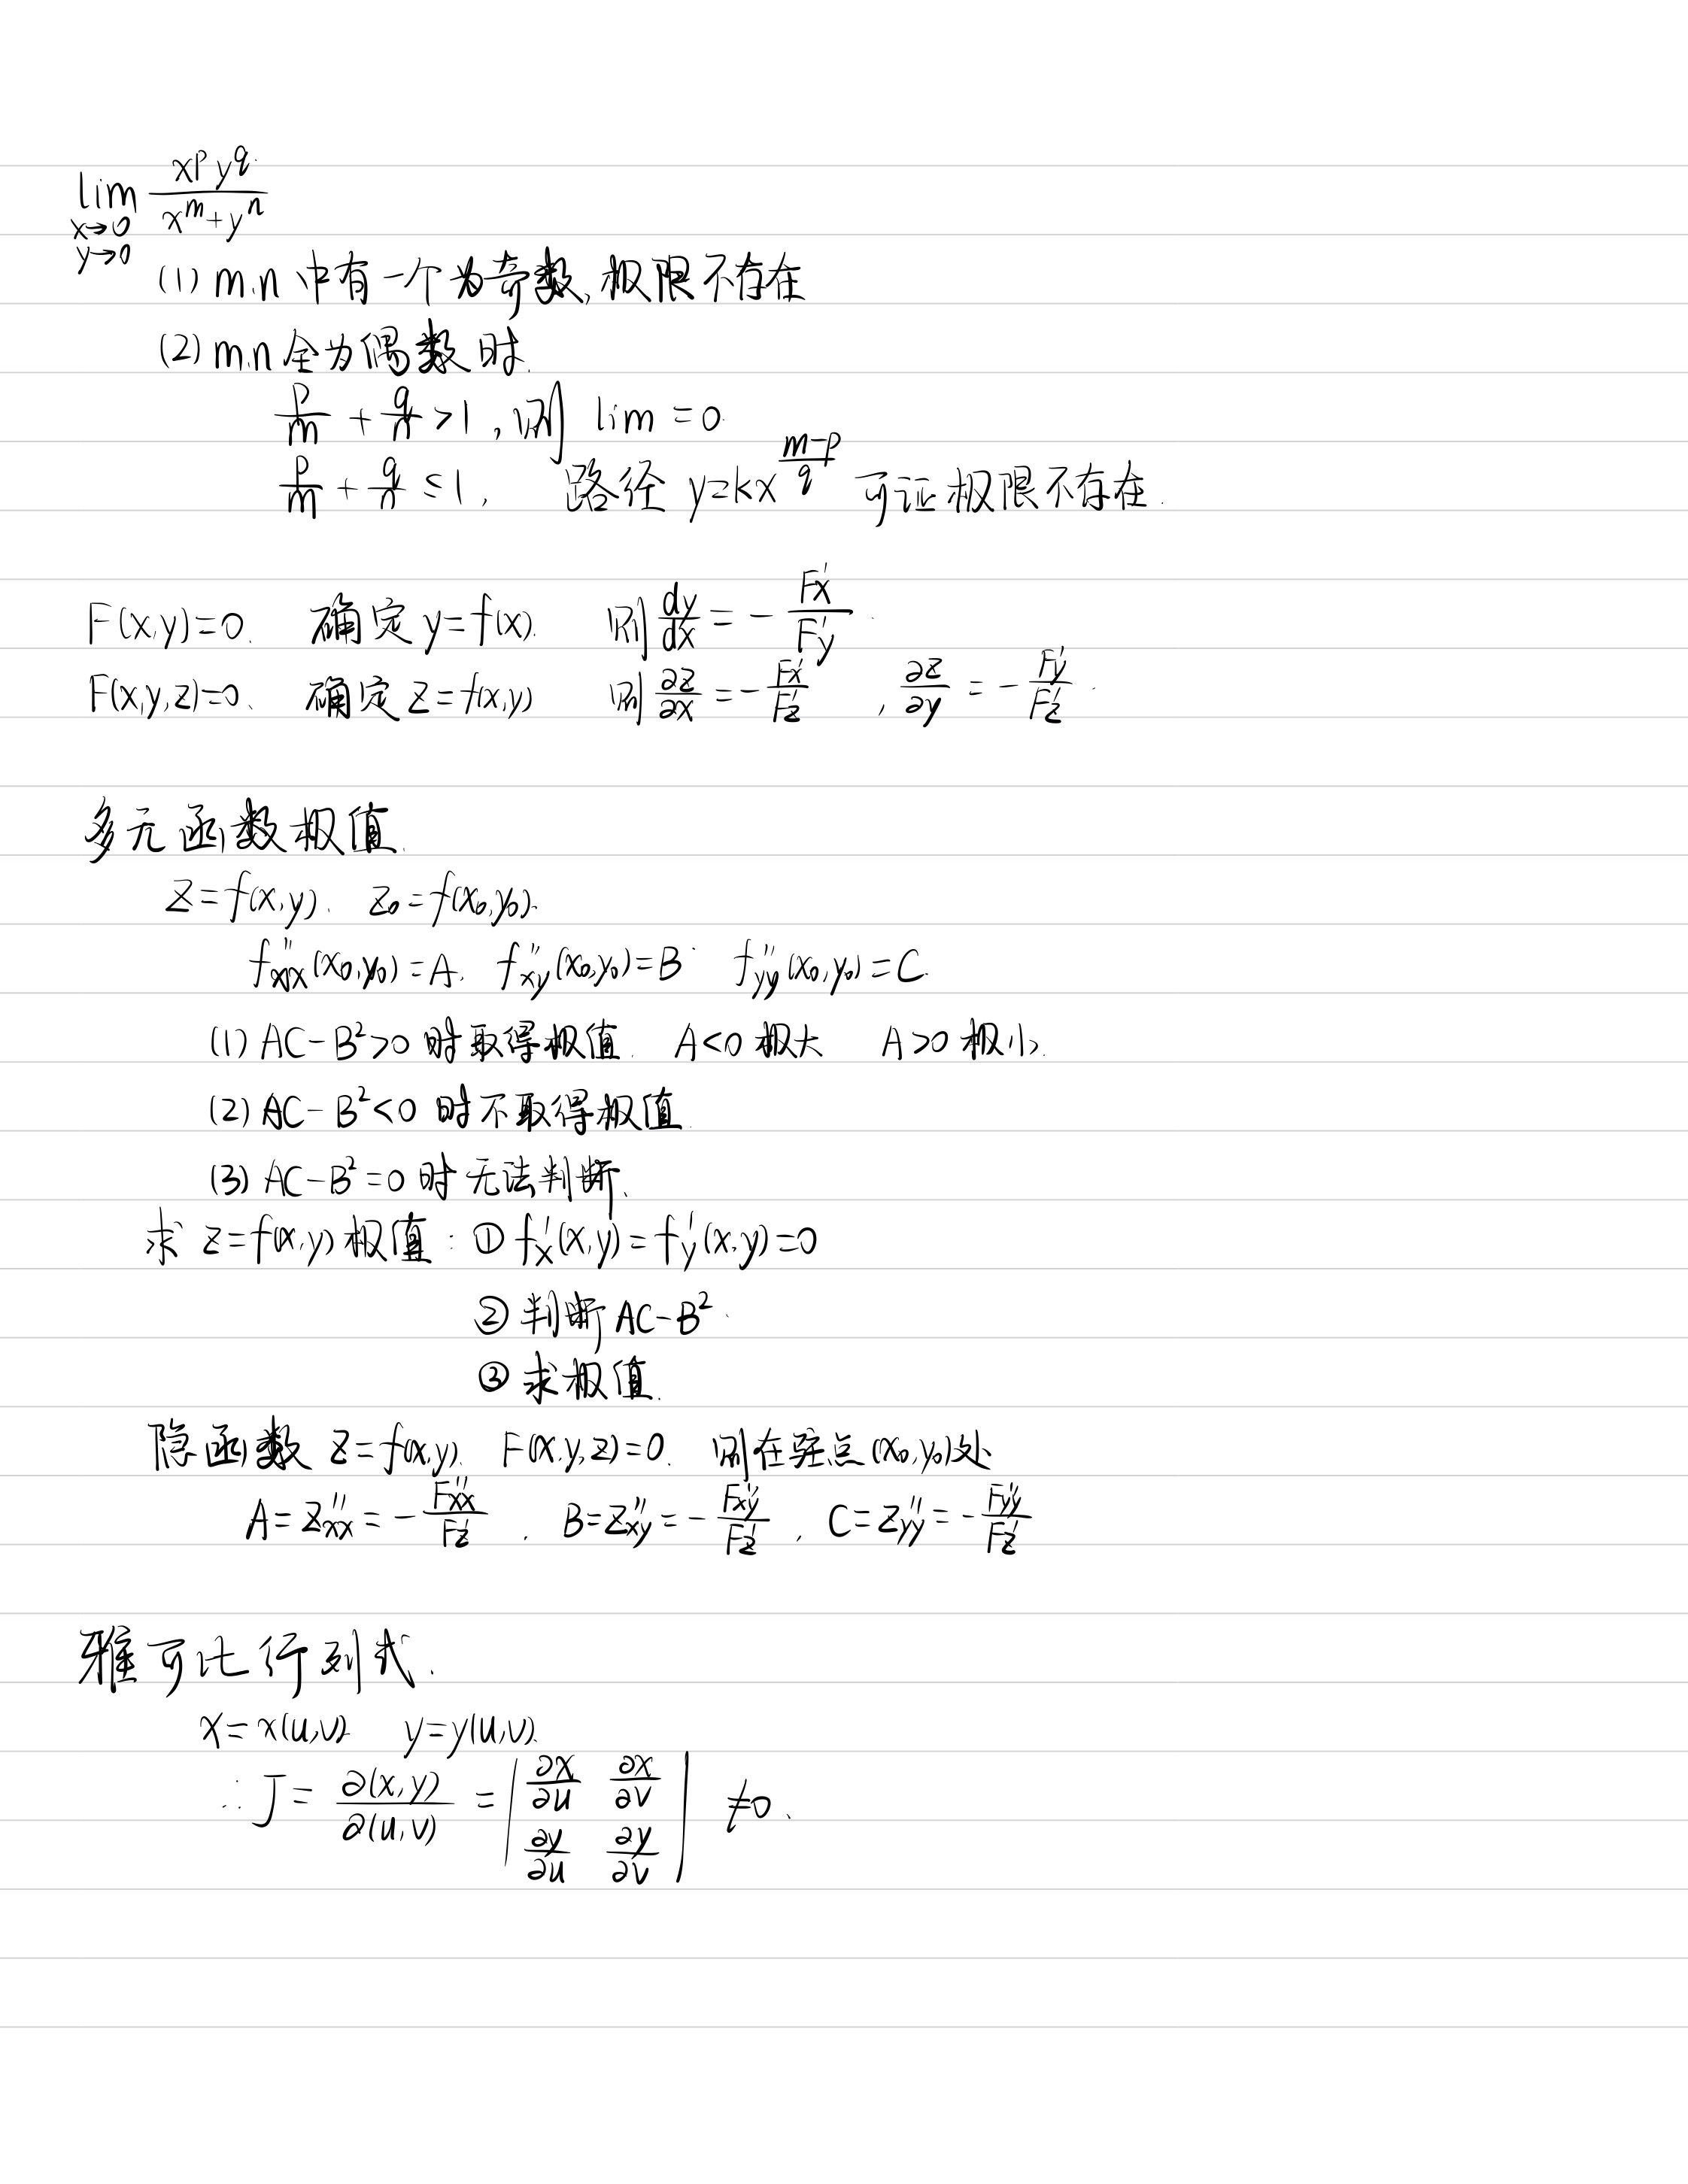 lim_{x→0, y→0} x^p y^q / (x^m + y^n)
(1) m.n 中有一个为奇数, 极限不存在
(2) m.n 全为偶数时.
p/m + q/n > 1, 则 lim = 0
p/m + q/n ≤ 1, 路径 y=kx^{(m-p)/q} 可证极限不存在.
F(x,y)=0. 确定 y=f(x). 则 dy/dx = - F'x / F'y .
F(x,y,z)=0. 确定 z=f(x,y) 则 ∂z/∂x = - F'x / F'z , ∂z/∂y = - F'y / F'z .
多元函数极值.
z=f(x,y). z₀=f(x₀,y₀).
f''xx(x₀,y₀)=A. f''xy(x₀,y₀)=B f''yy(x₀,y₀)=C.
(1) AC-B²>0 时取得极值. A<0 极大 A>0 极小.
(2) AC-B²<0 时不取得极值.
(3) AC-B²=0 时无法判断.
求 z=f(x,y) 极值: ① f'x(x,y)=f'y(x,y)=0
② 判断 AC-B².
③ 求极值.
隐函数 z=f(x,y). F(x,y,z)=0. 则在驻点(x₀,y₀)处
A=z''xx = - F''xx / F'z , B=z''xy = - F''xy / F'z , C=z''yy = - F''yy / F'z
雅可比行列式.
x=x(u,v) y=y(u,v).
∴ J = ∂(x,y)/∂(u,v) = | ∂x/∂u ∂x/∂v | ≠0.
| ∂y/∂u ∂y/∂v |